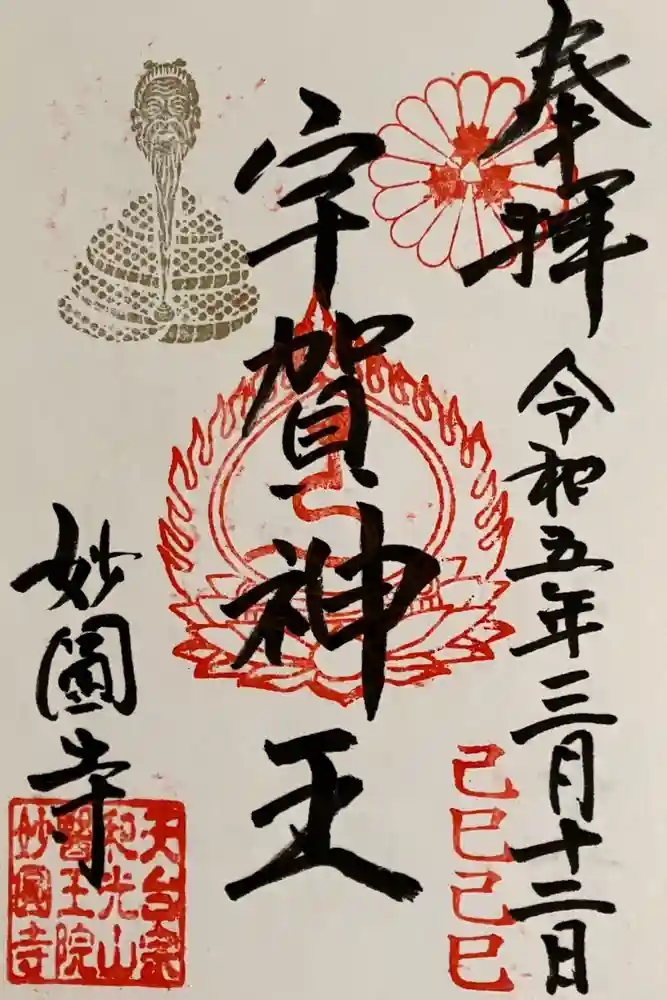 奉拝
令和五年三月十二日
己巳己巳
宇賀神王
妙圓寺
天台宗
和光山
醫王院
妙圓寺